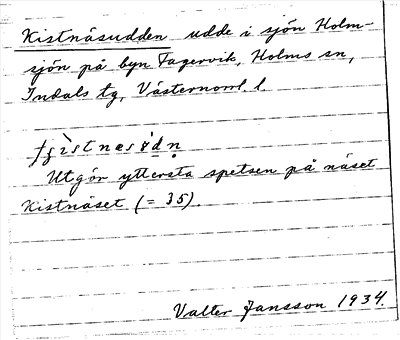 Kistnäsudden udde i sjön Holm-
sjön på byn Fagervik, Holms sn,
Indals tg, Västernorrl. l.
Utgör yttersta spetsen på näset
Kistnäset (= 35).
Valter Jansson 1934.